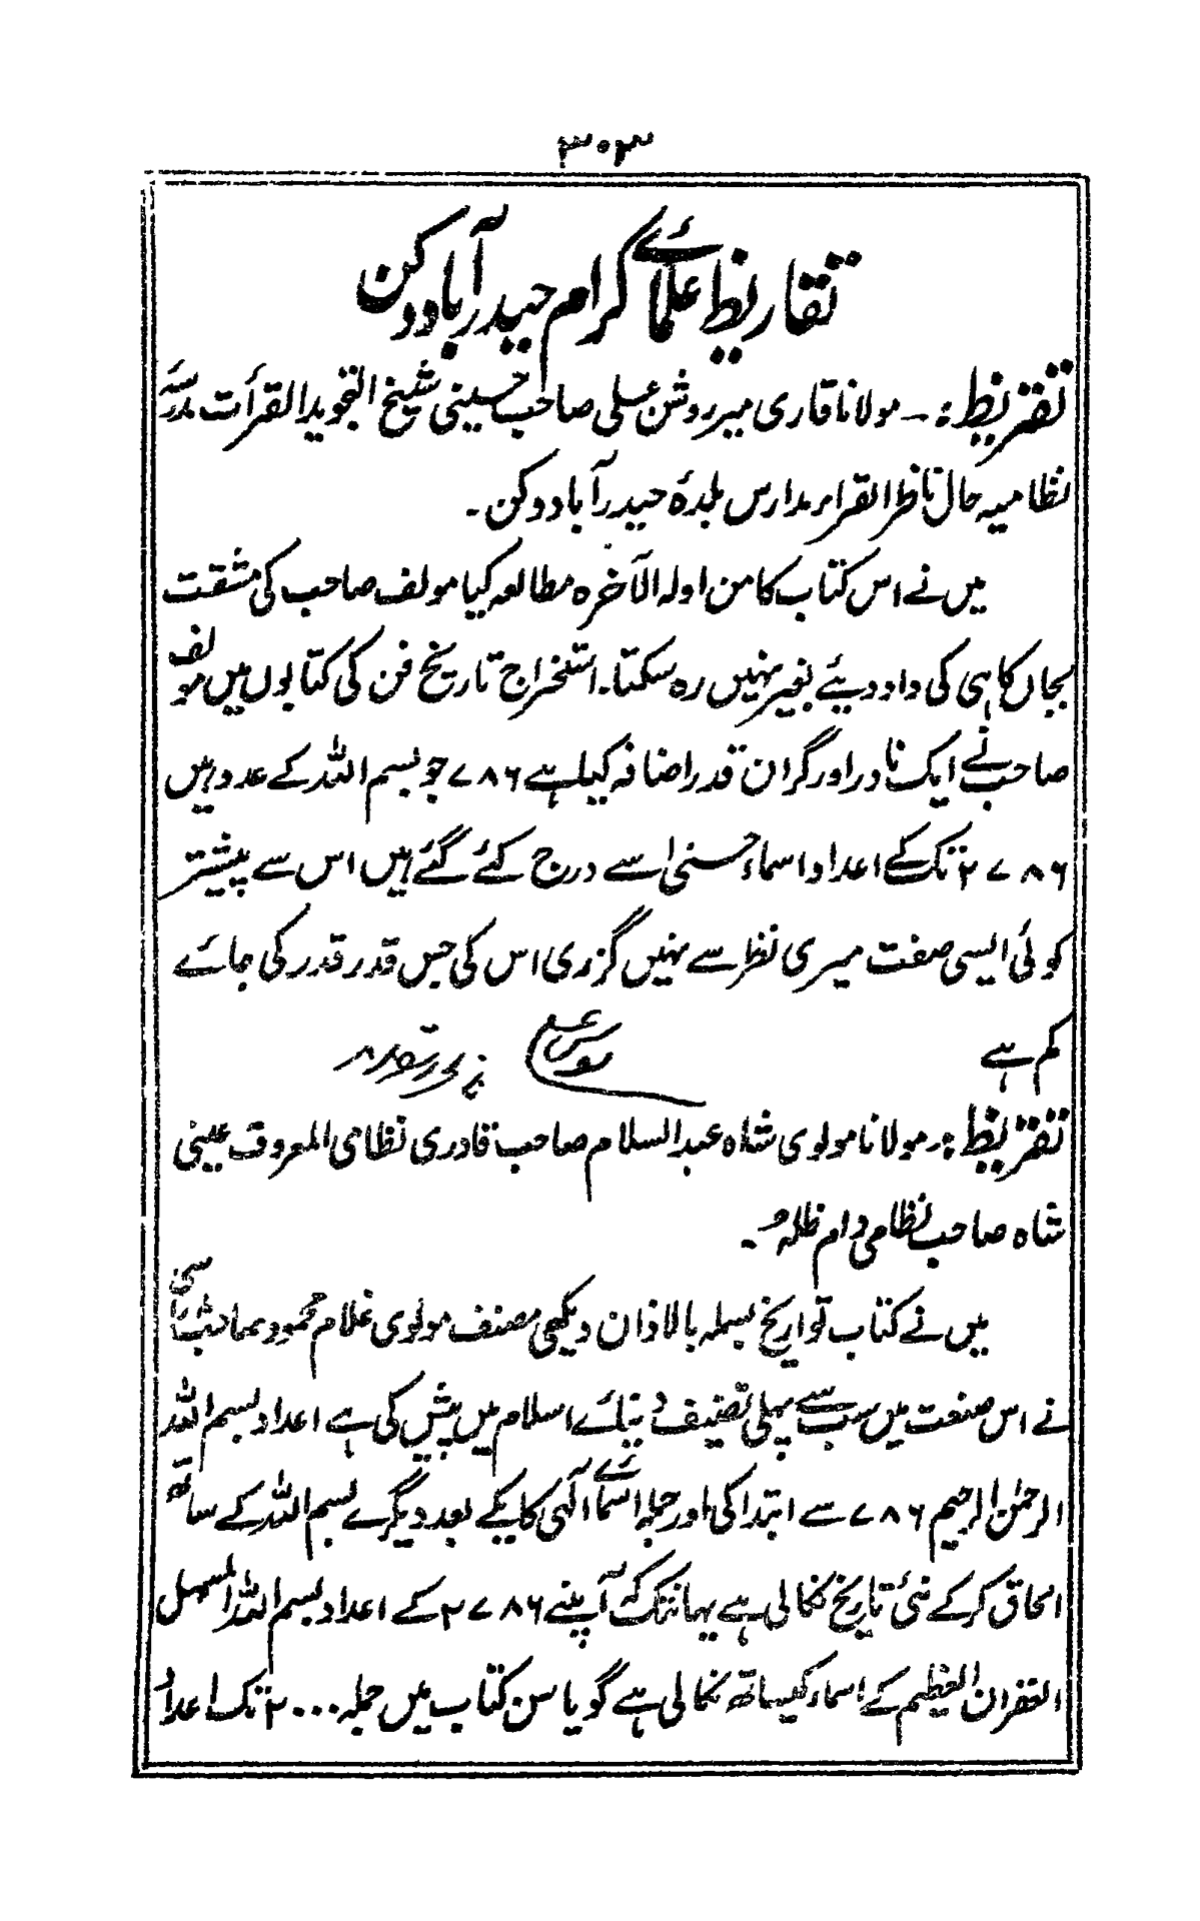 ۳۰۳
تقاریظ علمائے کرام حیدرآباد دکن
تقریظ :۔ مولانا قاری میر روشن علی صاحب حسینی شیخ التجوید القرأت مدرسہ
نظامیہ حال ناظر القراء مدارس بلدۂ حیدرآباد دکن ۔
میں نے اس کتاب کا من اولہ الآخرہ مطالعہ کیا مولف صاحب کی مشقت
بجاں کاہی کی داد دیئے بغیر نہیں رہ سکتا۔ استخراج تاریخ فن کی کتابوں میں مولف
صاحب نے ایک نادر اور گران قدر اضافہ کیا ہے ۷۸۶ جو بسم اللہ کے عدد ہیں
۲۷۸۶ تک کے اعداد اسماء حسنیٰ سے درج کئے گئے ہیں اس سے پیشتر
کوئی ایسی صفت میری نظر سے نہیں گزری اس کی جس قدر قدر کی جائے
کم ہے
تقریظ :۔ مولانا مولوی شاہ عبدالسلام صاحب قادری نظامی المعروف عینی
شاہ صاحب نظامی دام ظلہٗ ۔
میں نے کتاب تواریخ بسملہ بالاذان دیکھی مصنف مولوی غلام محمود صاحب
نے اس صنعت میں سب سے پہلی تصنیف دنیائے اسلام میں پیش کی ہے اعداد بسم اللہ
الرحمٰن الرحیم ۷۸۶ سے ابتدا کی اور جملہ اسمائے الٰہی کا یکے بعد دیگرے بسم اللہ کے ساتھ
الحاق کرکے نئی تاریخ نکالی ہے یہانتک کہ آپنے ۲۷۸۶ کے اعداد بسم اللہ المسہل
الغفران العظیم کے اسماء کیساتھ نکالی ہے گویا سن کتاب میں جملہ ۲۰۰۰ تک اعداد